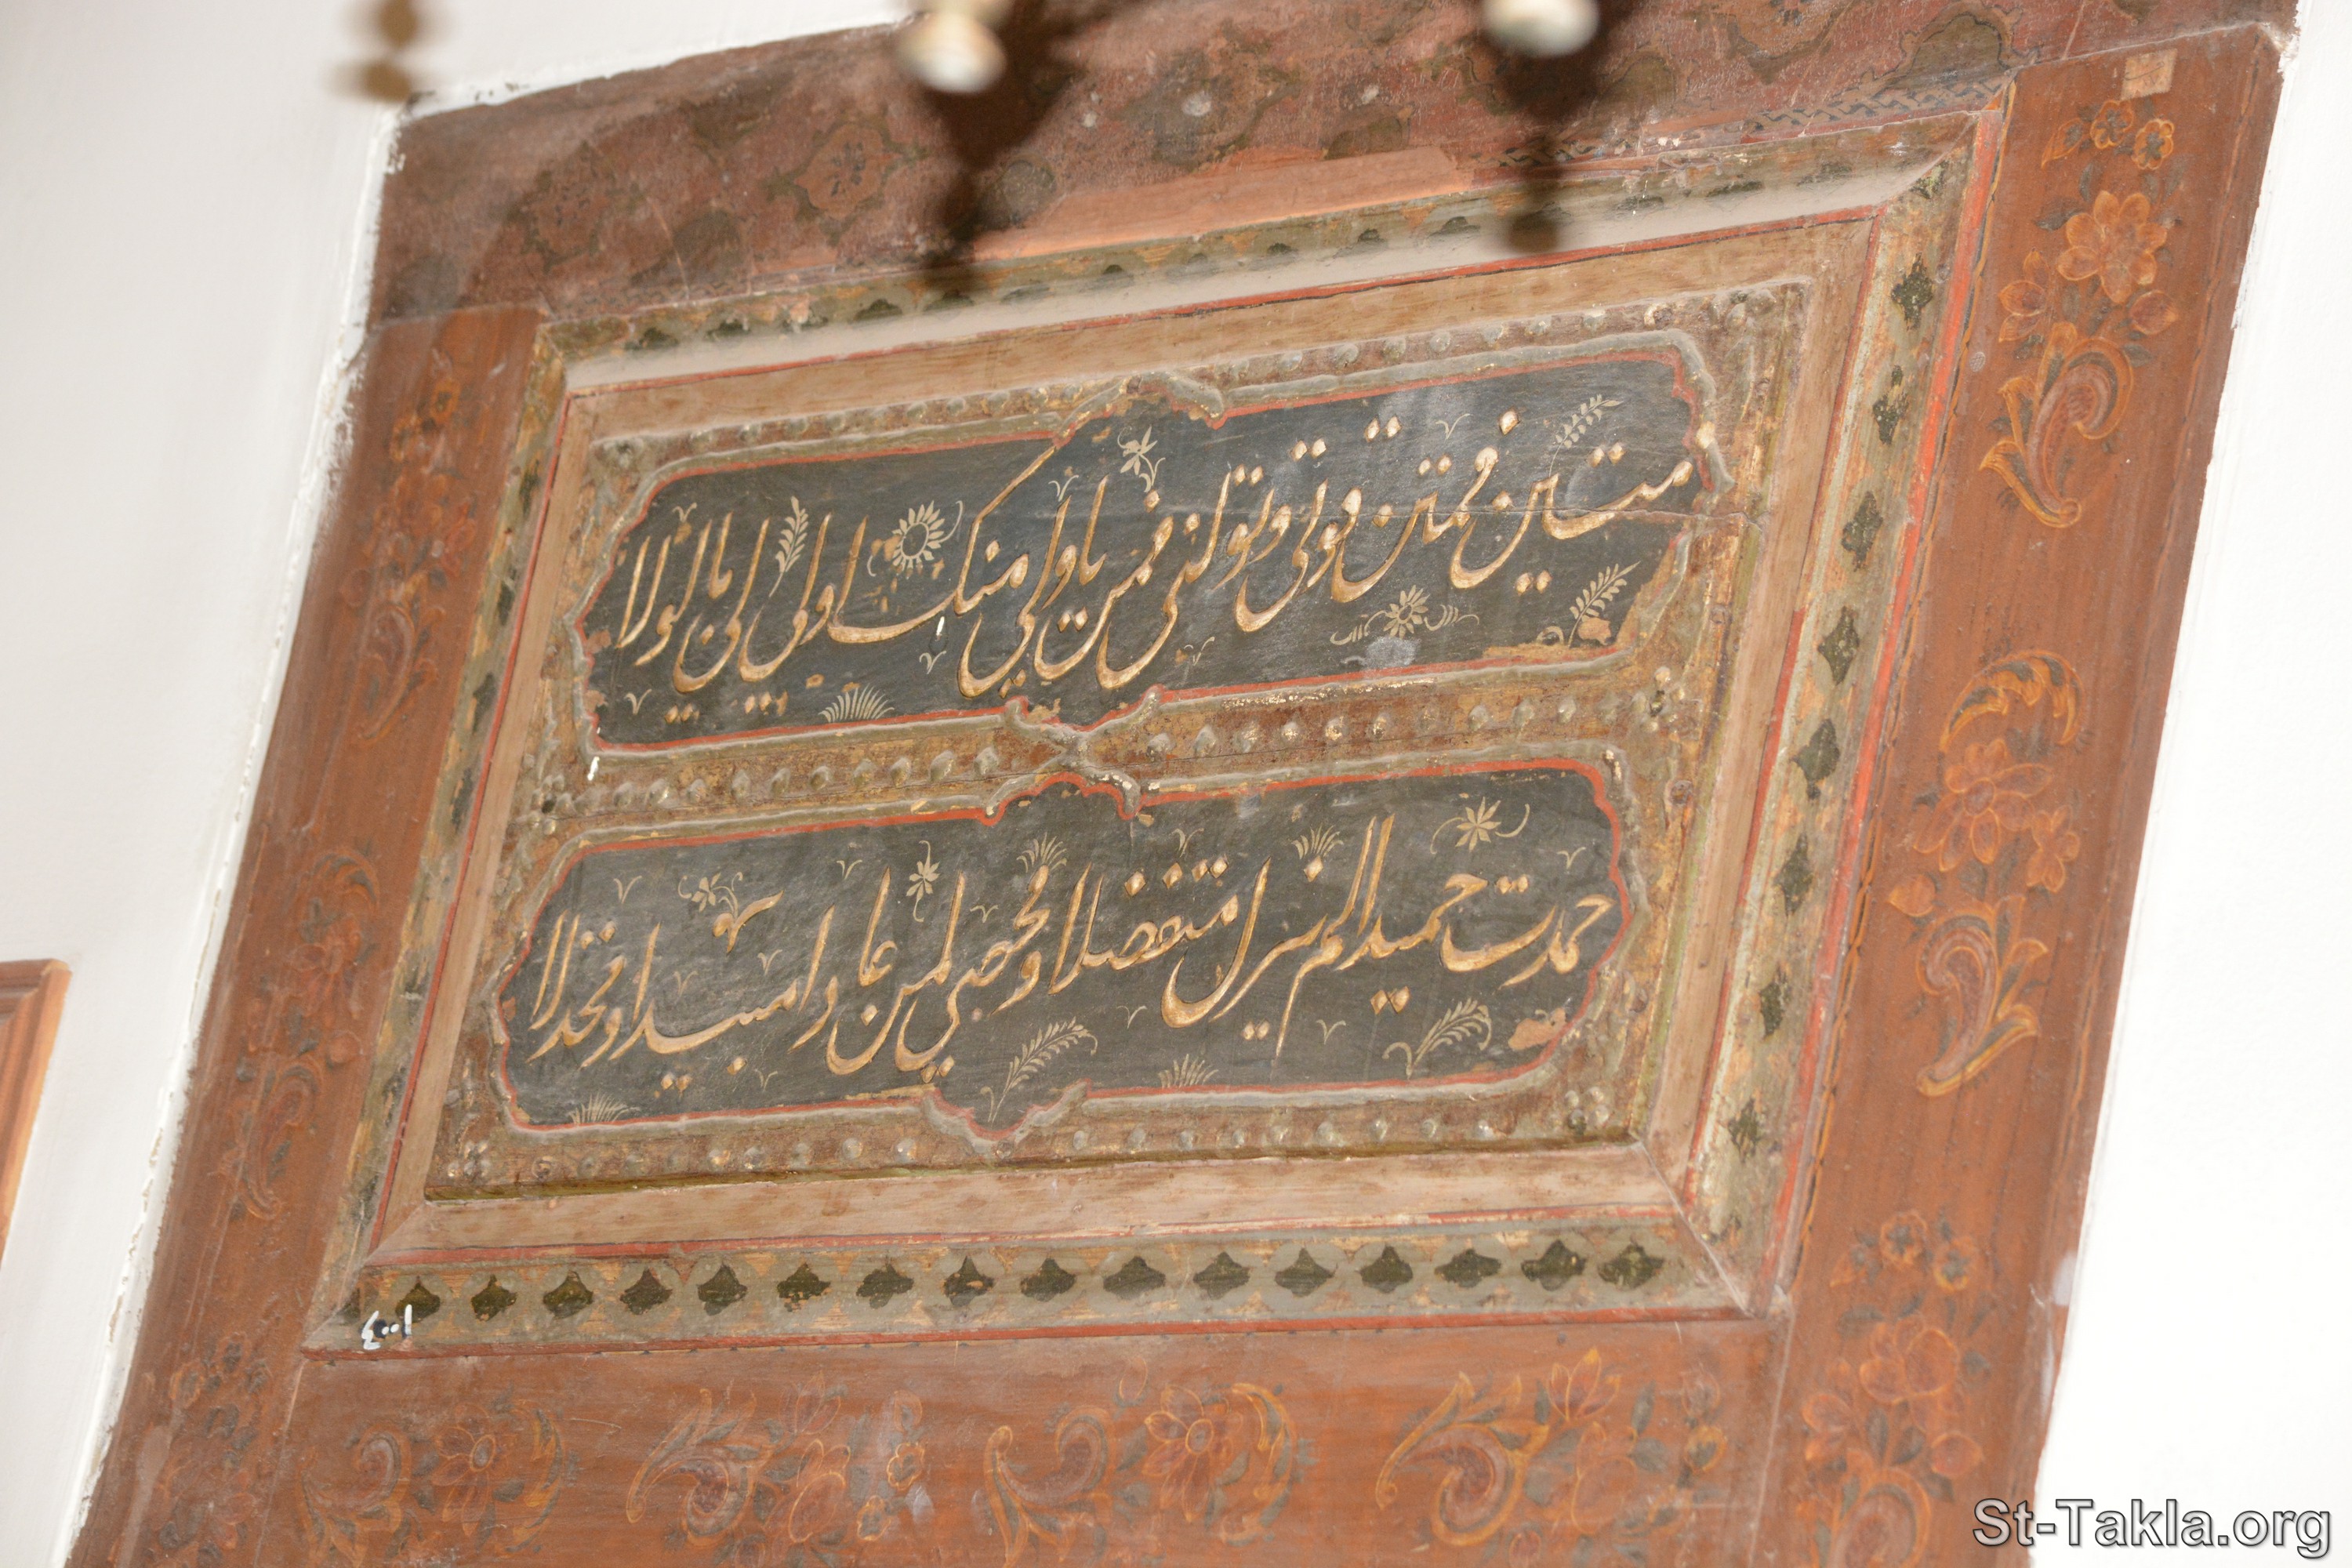 متين فمتن قوتي وتولني فمن يا ولي منك اولي لي بالولا
حمدت حميدا لم يزل متفضلا ومحصي لمن عادا مبيدا ومخذلا
٤٠٠١
St-Takla.org